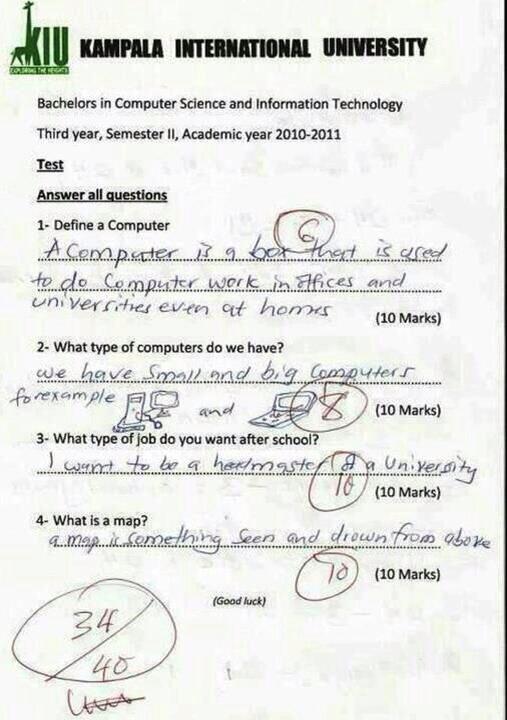 KIU
EXPLORING THE HEIGHTS
KAMPALA INTERNATIONAL UNIVERSITY
Bachelors in Computer Science and Information Technology
Third year, Semester II, Academic year 2010-2011
Test
Answer all questions
1- Define a Computer
6
A Computer is a box that is used
to do Computer work in offices and
universities even at homes
(10 Marks)
2- What type of computers do we have?
we have Small and big Computers
for example and
8
(10 Marks)
3- What type of job do you want after school?
I want to be a headmaster of a University
10
(10 Marks)
4- What is a map?
a map is something seen and drown from above
10
(10 Marks)
(Good luck)
34/40